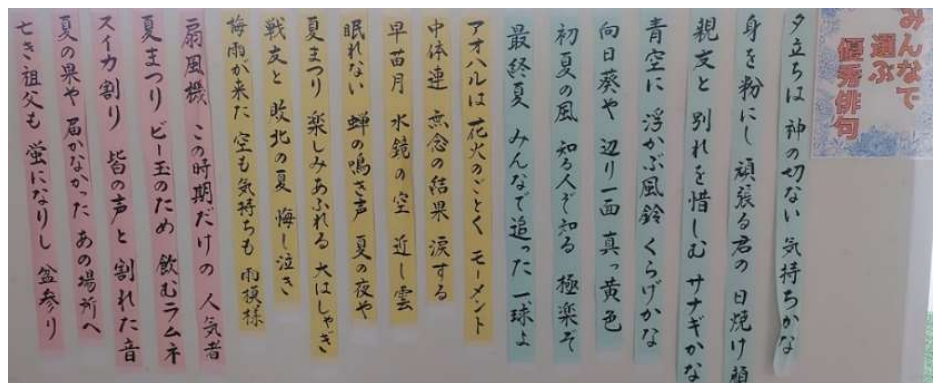 みんなで
選ぶ
優秀俳句
夕立ちは 神の切ない 気持ちかな
身を粉にし 頑張る君の 日焼け顔
親友と 別れを惜しむ サナギかな
青空に 浮かぶ風鈴 くらげかな
向日葵や 辺り一面 真っ黄色
初夏の風 知る人ぞ知る 極楽ぞ
最終夏 みんなで追った 一球よ
アオハルは 花火のごとく モーメント
中体連 無念の結果 涙する
早苗月 水鏡の空 近し雲
眠れない 蝉の鳴き声 夏の夜や
夏まつり 楽しみあふれる 大はしゃぎ
戦友と 敗北の夏 悔し泣き
梅雨が来た 空も気持ちも 雨模様
扇風機 この時期だけの 人気者
夏まつり ビー玉のため 飲むラムネ
スイカ割り 皆の声と 割れた音
夏の果や 届かなかった あの場所へ
亡き祖父も 蛍になりし 盆参り